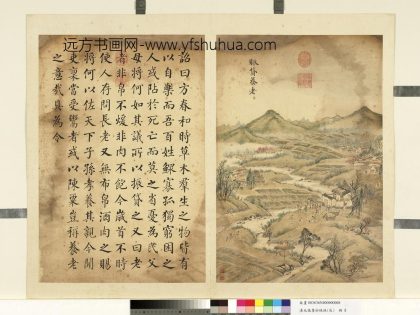 远方书画网-www.yfshuhua.com
賑貸養老
詔曰方春和時草木群生之物皆有
以自樂而吾百姓鰥寡孤獨窮困之
人或阽於死亡而莫之省憂為民父
母將何如其議所以振貸之又曰老
者非帛不煖非肉不飽今歲首不時
使人存問長老又無布帛酒肉之賜
將何以佐天下子孫孝養其親今聞
吏稟當受鬻者或以陳粟豈稱養老
之意哉具為令